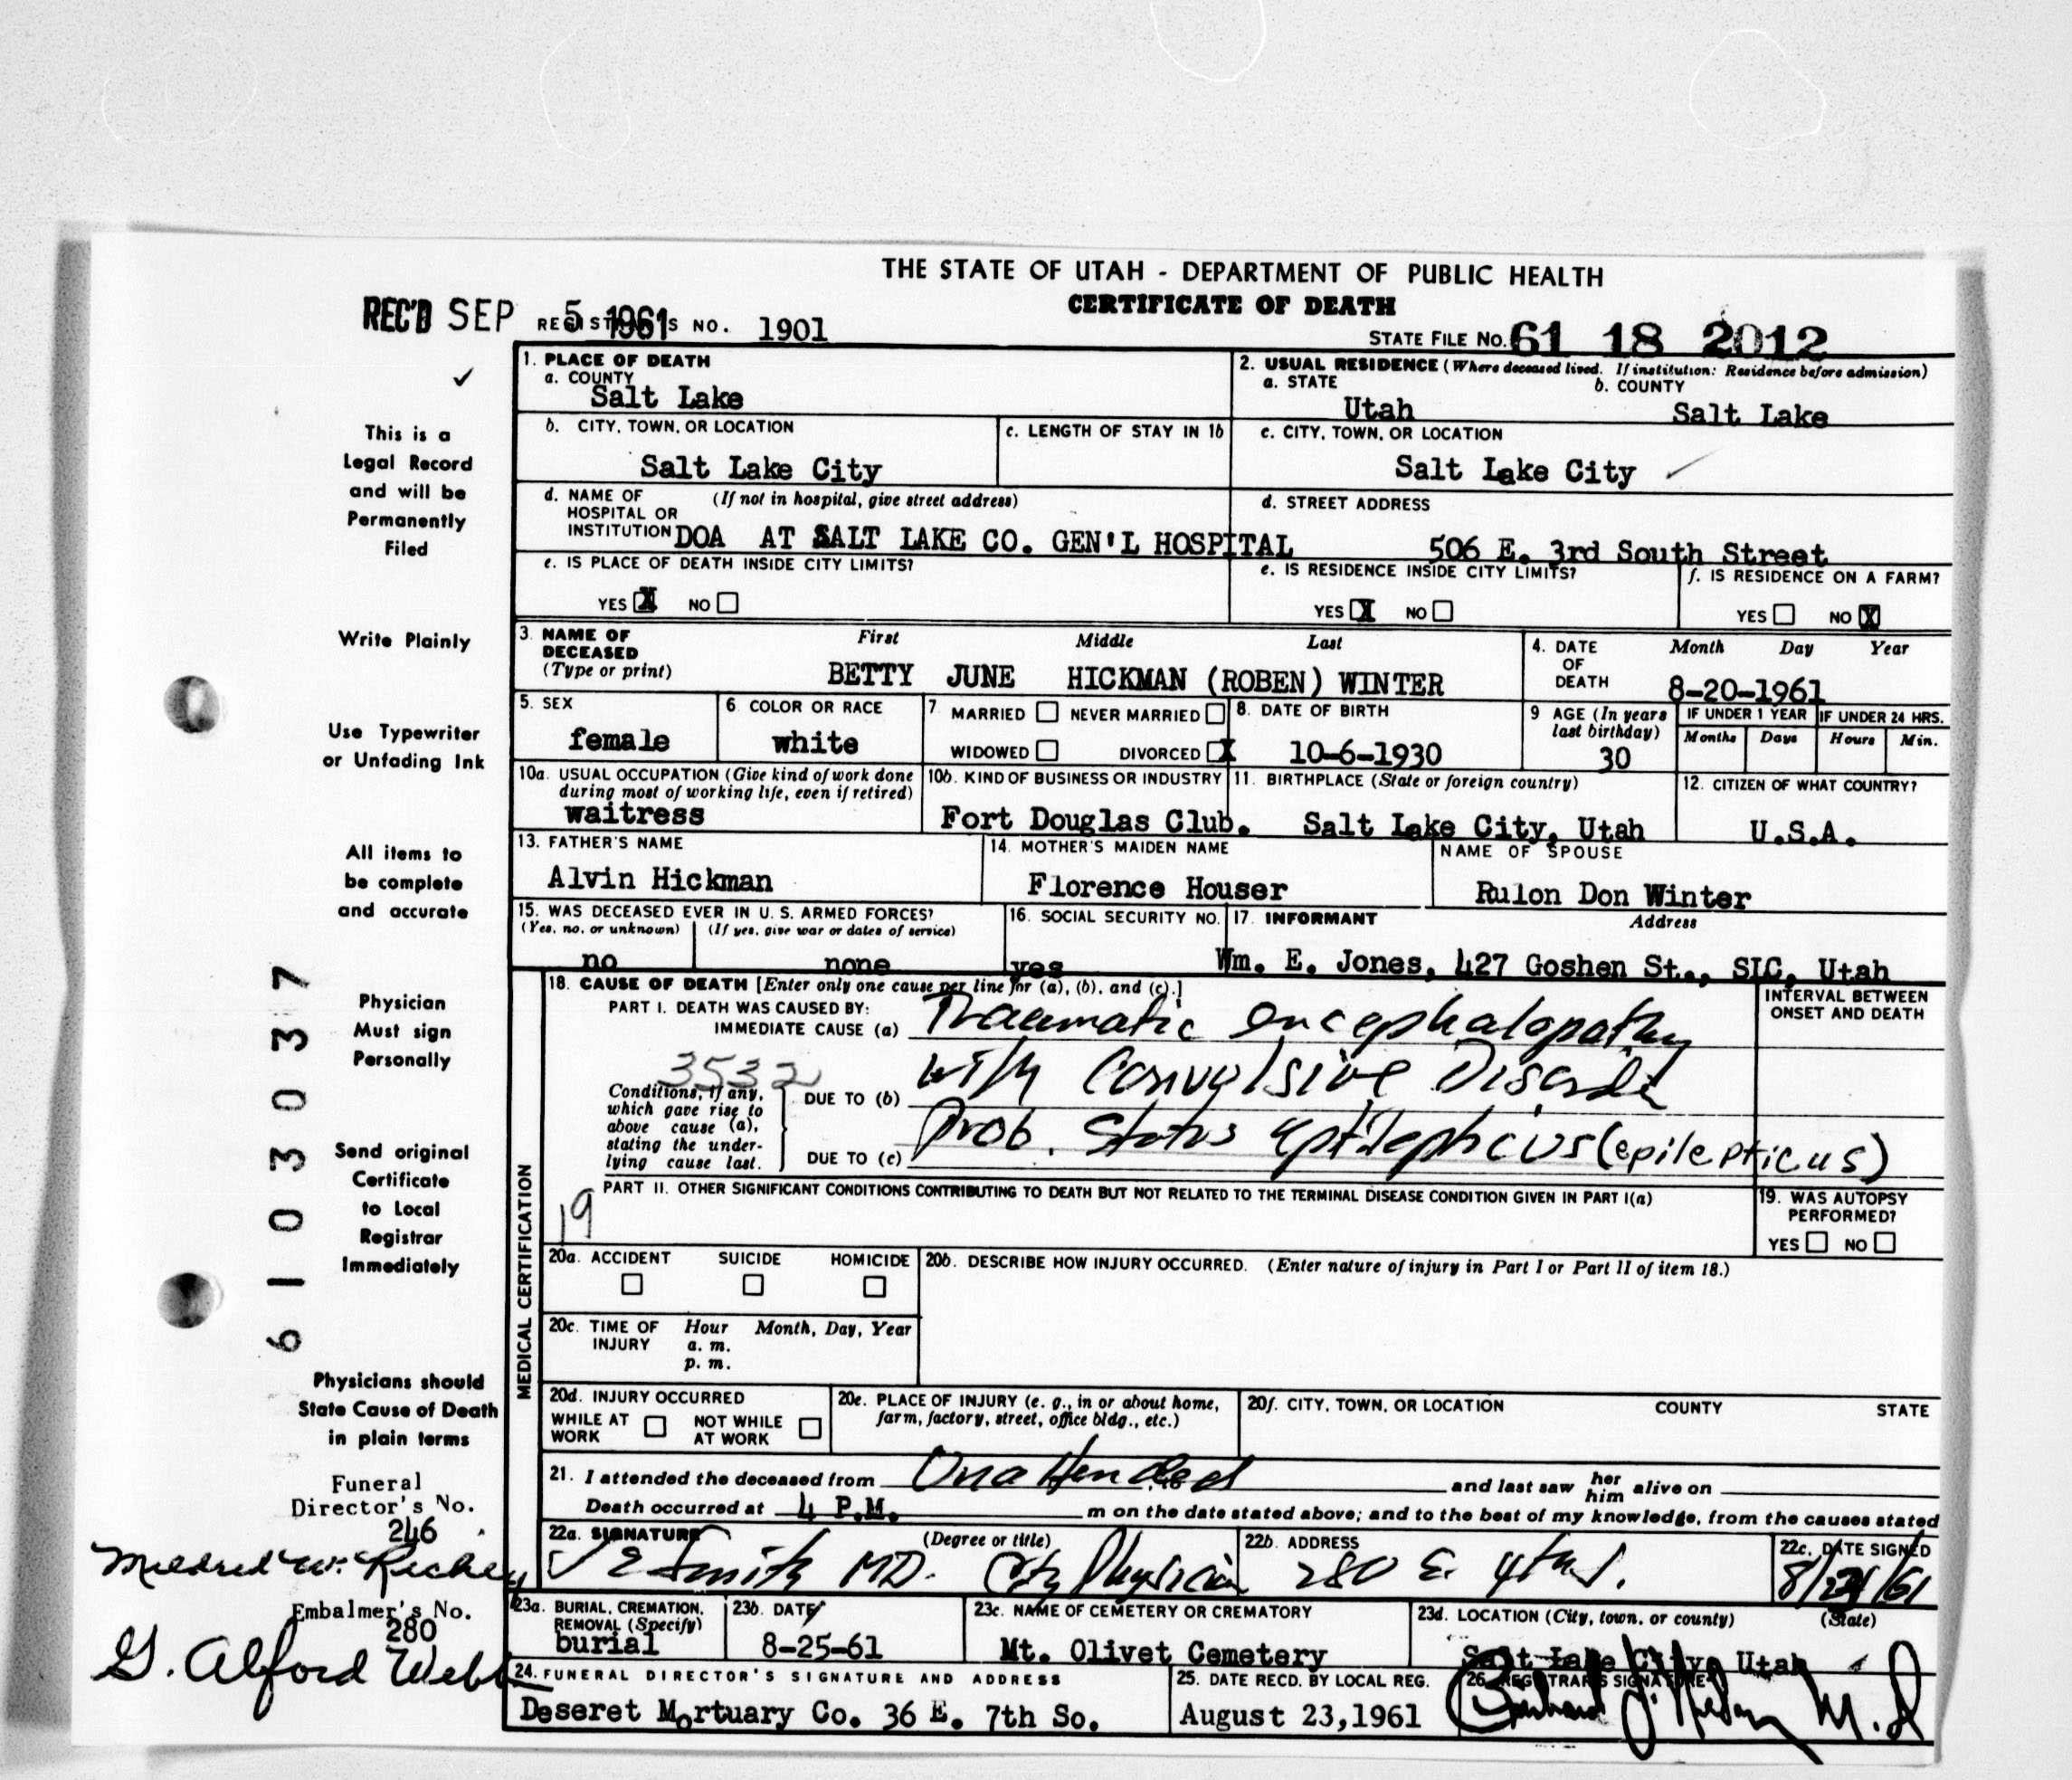 THE STATE OF UTAH - DEPARTMENT OF PUBLIC HEALTH
CERTIFICATE OF DEATH
REC'D SEP 5 1961 REGISTRAR'S NO. 1901
STATE FILE NO. 61 18 2012
1. PLACE OF DEATH
a. COUNTY
Salt Lake
2. USUAL RESIDENCE (Where deceased lived. If institution: Residence before admission)
a. STATE
Utah
b. COUNTY
Salt Lake
b. CITY, TOWN, OR LOCATION
Salt Lake City
c. LENGTH OF STAY IN 1b
c. CITY, TOWN, OR LOCATION
Salt Lake City
d. NAME OF HOSPITAL OR INSTITUTION (If not in hospital, give street address)
DOA AT SALT LAKE CO. GEN'L HOSPITAL
d. STREET ADDRESS
506 E. 3rd South Street
e. IS PLACE OF DEATH INSIDE CITY LIMITS?
YES X NO
e. IS RESIDENCE INSIDE CITY LIMITS?
YES X NO
f. IS RESIDENCE ON A FARM?
YES NO X
3. NAME OF DECEASED (Type or print)
First Middle Last
BETTY JUNE HICKMAN (ROBEN) WINTER
4. DATE OF DEATH
Month Day Year
8-20-1961
5. SEX
female
6. COLOR OR RACE
white
7. MARRIED NEVER MARRIED
WIDOWED DIVORCED X
8. DATE OF BIRTH
10-6-1930
9 AGE (In years last birthday)
30
IF UNDER 1 YEAR
Months Days
IF UNDER 24 HRS.
Hours Min.
10a. USUAL OCCUPATION (Give kind of work done during most of working life, even if retired)
waitress
10b. KIND OF BUSINESS OR INDUSTRY
Fort Douglas Club.
11. BIRTHPLACE (State or foreign country)
Salt Lake City, Utah
12. CITIZEN OF WHAT COUNTRY?
U.S.A.
13. FATHER'S NAME
Alvin Hickman
14. MOTHER'S MAIDEN NAME
Florence Houser
NAME OF SPOUSE
Rulon Don Winter
15. WAS DECEASED EVER IN U. S. ARMED FORCES?
(Yes, no, or unknown) (If yes, give war or dates of service)
no none
16. SOCIAL SECURITY NO.
yes
17. INFORMANT Address
Wm. E. Jones, 427 Goshen St., SLC, Utah
18. CAUSE OF DEATH [Enter only one cause per line for (a), (b), and (c).]
PART I. DEATH WAS CAUSED BY:
IMMEDIATE CAUSE (a) Traumatic encephalopathy
3532
Conditions, if any, which gave rise to above cause (a), stating the underlying cause last.
DUE TO (b) with Convulsive Disorder
DUE TO (c) Prob. Status Eptilephicus (epilepticus)
INTERVAL BETWEEN ONSET AND DEATH
PART II. OTHER SIGNIFICANT CONDITIONS CONTRIBUTING TO DEATH BUT NOT RELATED TO THE TERMINAL DISEASE CONDITION GIVEN IN PART I(a)
19
19. WAS AUTOPSY PERFORMED?
YES NO
20a. ACCIDENT SUICIDE HOMICIDE
20b. DESCRIBE HOW INJURY OCCURRED. (Enter nature of injury in Part I or Part II of item 18.)
20c. TIME OF INJURY Hour Month, Day, Year
a. m.
p. m.
20d. INJURY OCCURRED
WHILE AT WORK NOT WHILE AT WORK
20e. PLACE OF INJURY (e. g., in or about home, farm, factory, street, office bldg., etc.)
20f. CITY, TOWN, OR LOCATION COUNTY STATE
MEDICAL CERTIFICATION
21. I attended the deceased from Unattended and last saw her him alive on
Death occurred at 4 P.M. m on the date stated above; and to the best of my knowledge, from the causes stated
22a. SIGNATURE (Degree or title)
J E Smith MD. City Physician
22b. ADDRESS
280 E. 4th S.
22c. DATE SIGNED
23a. BURIAL, CREMATION, REMOVAL (Specify)
burial
23b. DATE
8-25-61
23c. NAME OF CEMETERY OR CREMATORY
Mt. Olivet Cemetery
23d. LOCATION (City, town, or county) (State)
Salt Lake City, Utah
24. FUNERAL DIRECTOR'S SIGNATURE AND ADDRESS
Deseret Mortuary Co. 36 E. 7th So.
25. DATE RECD. BY LOCAL REG.
August 23, 1961
26. REGISTRAR'S SIGNATURE
M.D
This is a
Legal Record
and will be
Permanently
Filed
Write Plainly
Use Typewriter
or Unfading Ink
All items to
be complete
and accurate
Physician
Must sign
Personally
Send original
Certificate
to Local
Registrar
Immediately
Physicians should
State Cause of Death
in plain terms
Funeral
Director's No.
246
Mildred W. Richey
Embalmer's No.
280
G. Alford Webb
6103037